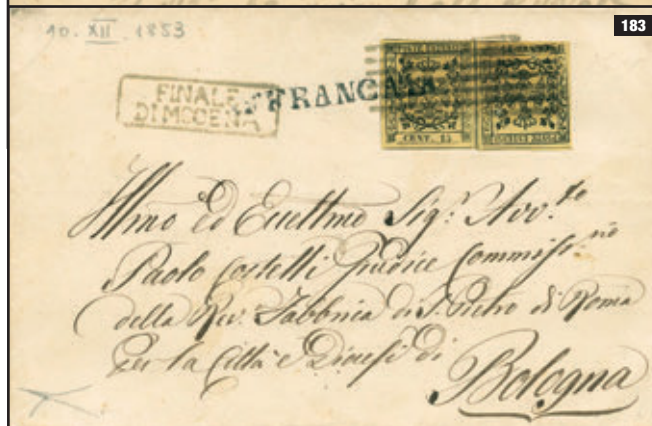 183
10. XII. 1853
FINALE
DI MODENA
AFFRANCATA
POSTE ESTENSI
CENT. 15
Illmo ed Eccellmo Sig.r Avv.to
Paolo Costelli Giudice Commiss.rio
della Rev. Fabbrica di S. Pietro di Roma
Per la Città e Diocesi di
Bologna